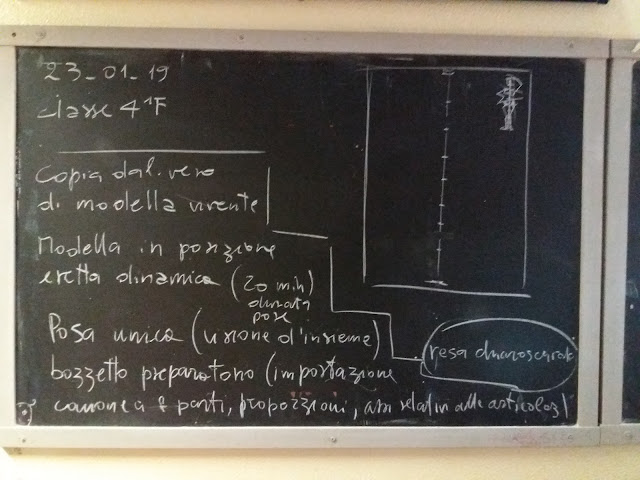 23-01-19
classe 4ªF
Copia dal vero
di modella vivente
Modella in posizione
eretta dinamica (20 min)
durata
pose
Posa unica (visione d'insieme)
bozzetto preparatorio (impostazione
canone a 8 parti, proporzioni, assi relativi alle articolaz
resa chiaroscurale